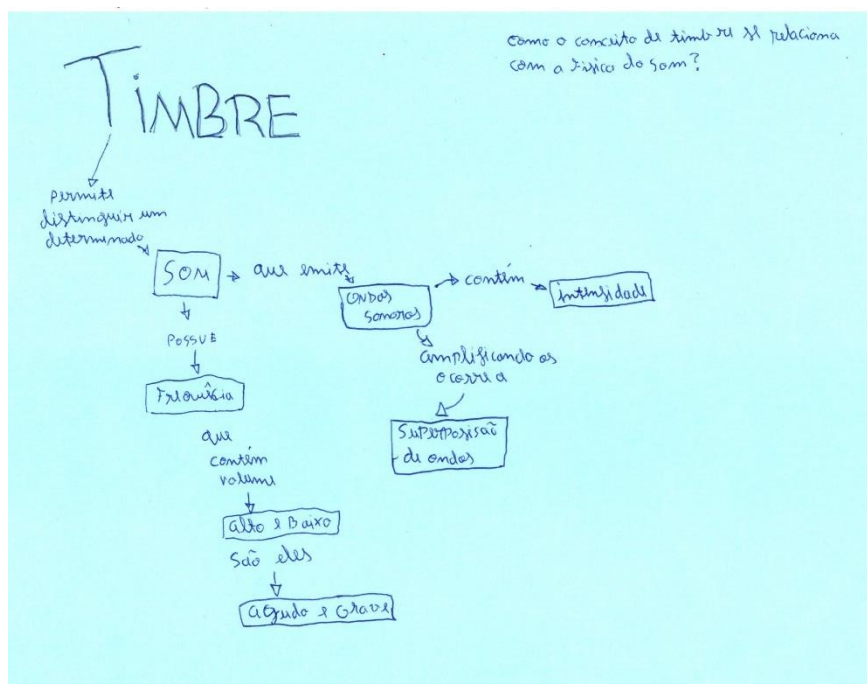 TIMBRE
como o conceito de timbre se relaciona
com a Física do som?
Permite
distinguir um
determinado
SOM
que emite
ONDAS
sonoras
contém
intensidade
POSSUE
Frequência
amplificando as
ocorre a
Superposisão
de ondas
que
contém
volume
Alto e Baixo
São eles
Agudo e Grave